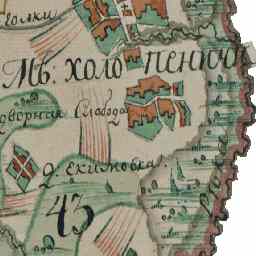 Мв: холопеничи
дворная Слобода
д. Екимовка
43